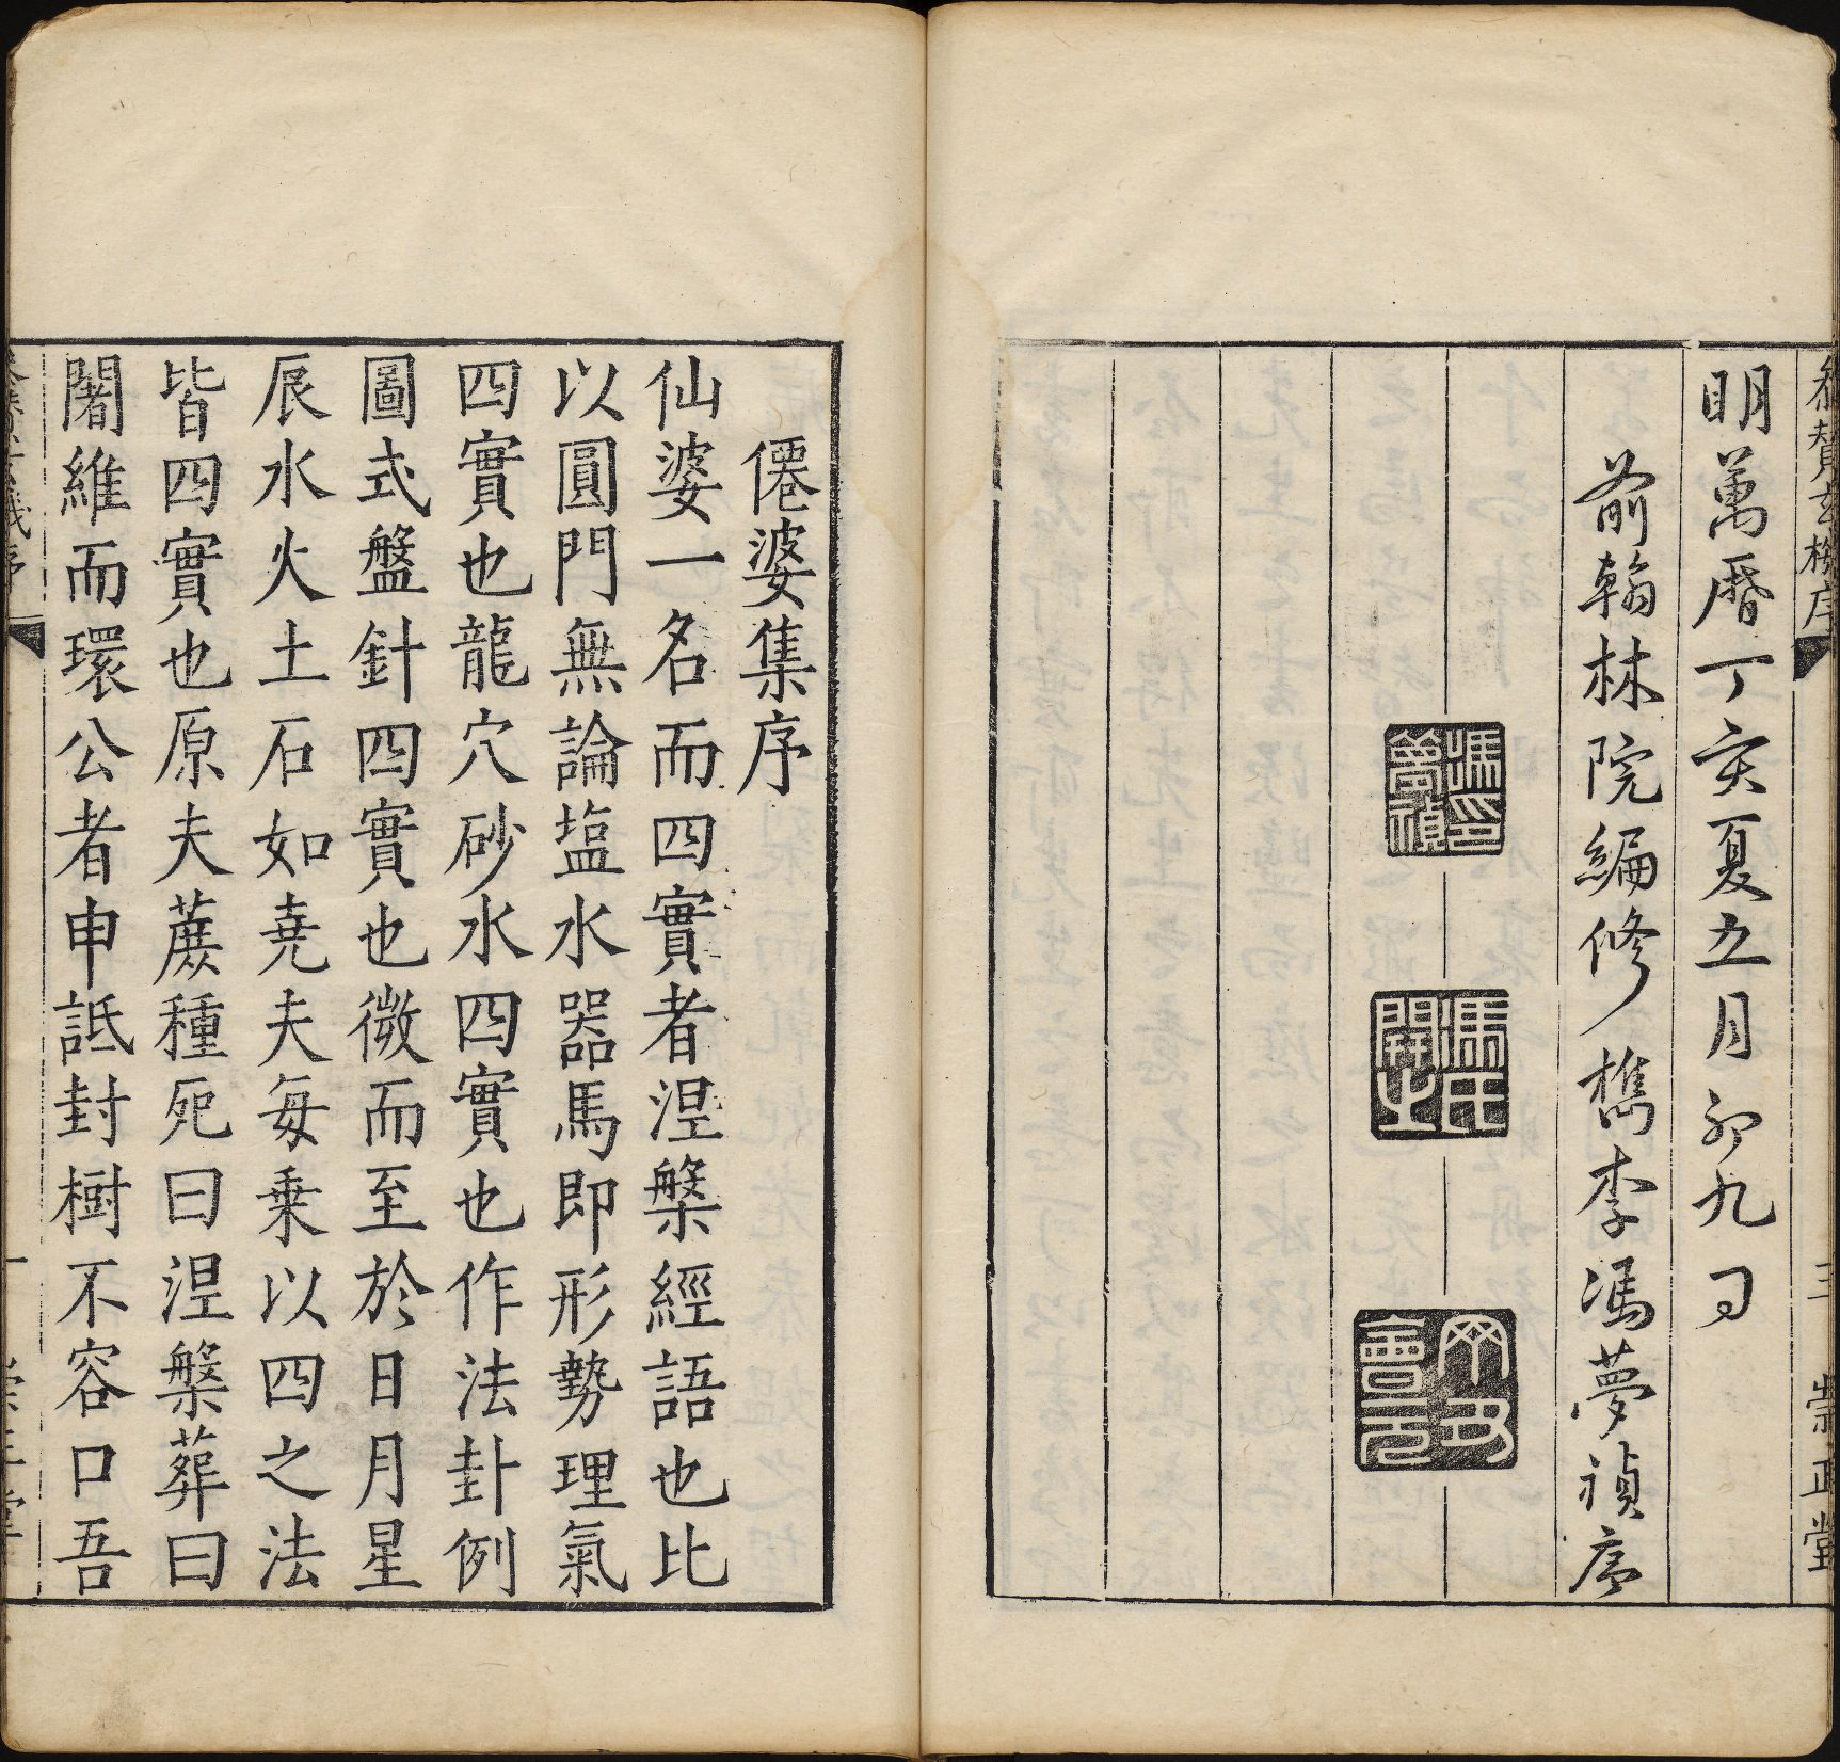 明萬曆丁亥夏五月初九日
前翰林院編修檇李馮夢禎序
馮印夢禎
馮氏開之
崇正堂
三
僊婆集序
仙婆一名而四實者涅槃經語也比
以圓門無論塩水器馬即形勢理氣
四實也龍穴砂水四實也作法卦例
圖式盤針四實也微而至於日月星
辰水火土石如堯夫每乗以四之法
皆四實也原夫蔗種死曰涅槃葬曰
闍維而環公者申詆封樹不容口吾